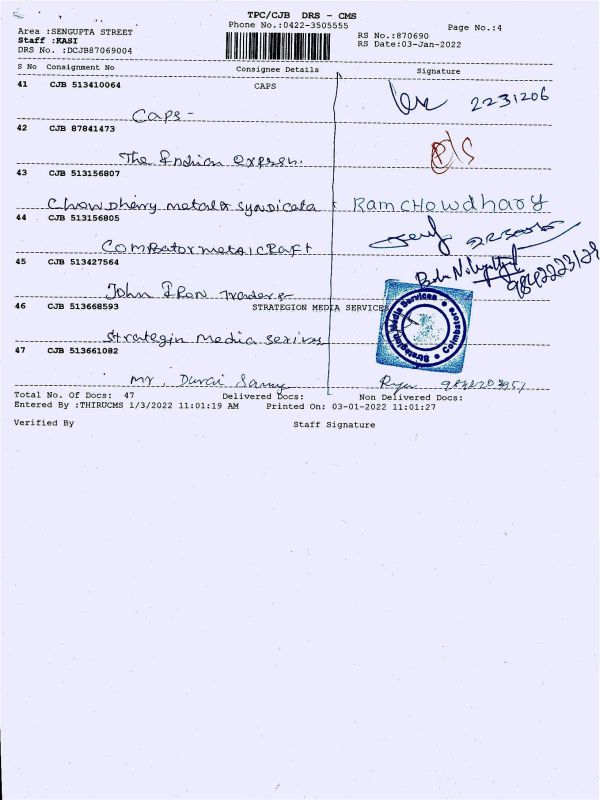 TPC/CJB DRS - CMS
Phone No.:0422-3505555
Page No.:4
Area :SENGUPTA STREET
Staff :KASI
DRS No. :DCJB87069004
RS No.:870690
RS Date:03-Jan-2022
S No Consignment No Consignee Details Signature
41 CJB 513410064 CAPS
Caps - 2231206
42 CJB 87841473
The Indian Express. P/S
43 CJB 513156807
Chowdherry metals syndicata Ram CHowdhary
44 CJB 513156805
Combator metalcraft
45 CJB 513427564
John Iron Traders 9842223129
46 CJB 513668593 STRATEGION MEDIA SERVICES
Strategin media serives
Strategion Media Services Coimbatore
47 CJB 513661082
Mr. Durai Samy
Total No. Of Docs: 47 Delivered Docs: Non Delivered Docs:
Entered By :THIRUCMS 1/3/2022 11:01:19 AM Printed On: 03-01-2022 11:01:27
Verified By Staff Signature